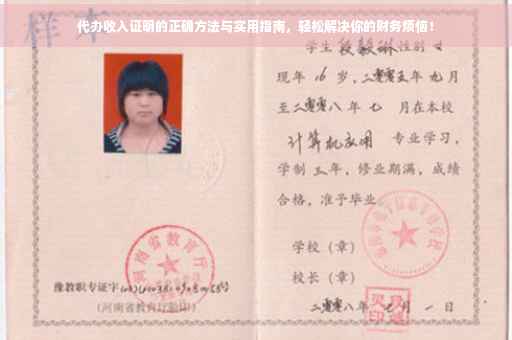 代办收入证明的正确方法与实用指南，轻松解决你的财务烦恼！
样本
学生 性别 女
现年 16 岁，二零零五年 九月
至二零零八年 七 月在本校
计算机应用 专业学习，
学制 三年，修业期满，成绩
合格，准予毕业
学校（章）
校长（章）
二零零八年 月 一 日
河南省教育厅
豫教职专证字
（河南省教育厅验印）